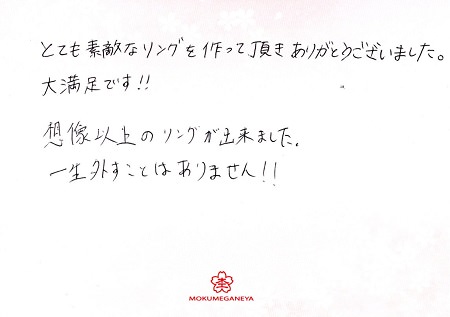 とても素敵なリングを作って頂きありがとうございました。
大満足です!!
想像以上のリングが出来ました。
一生外すことはありません!!
MOKUMEGANEYA